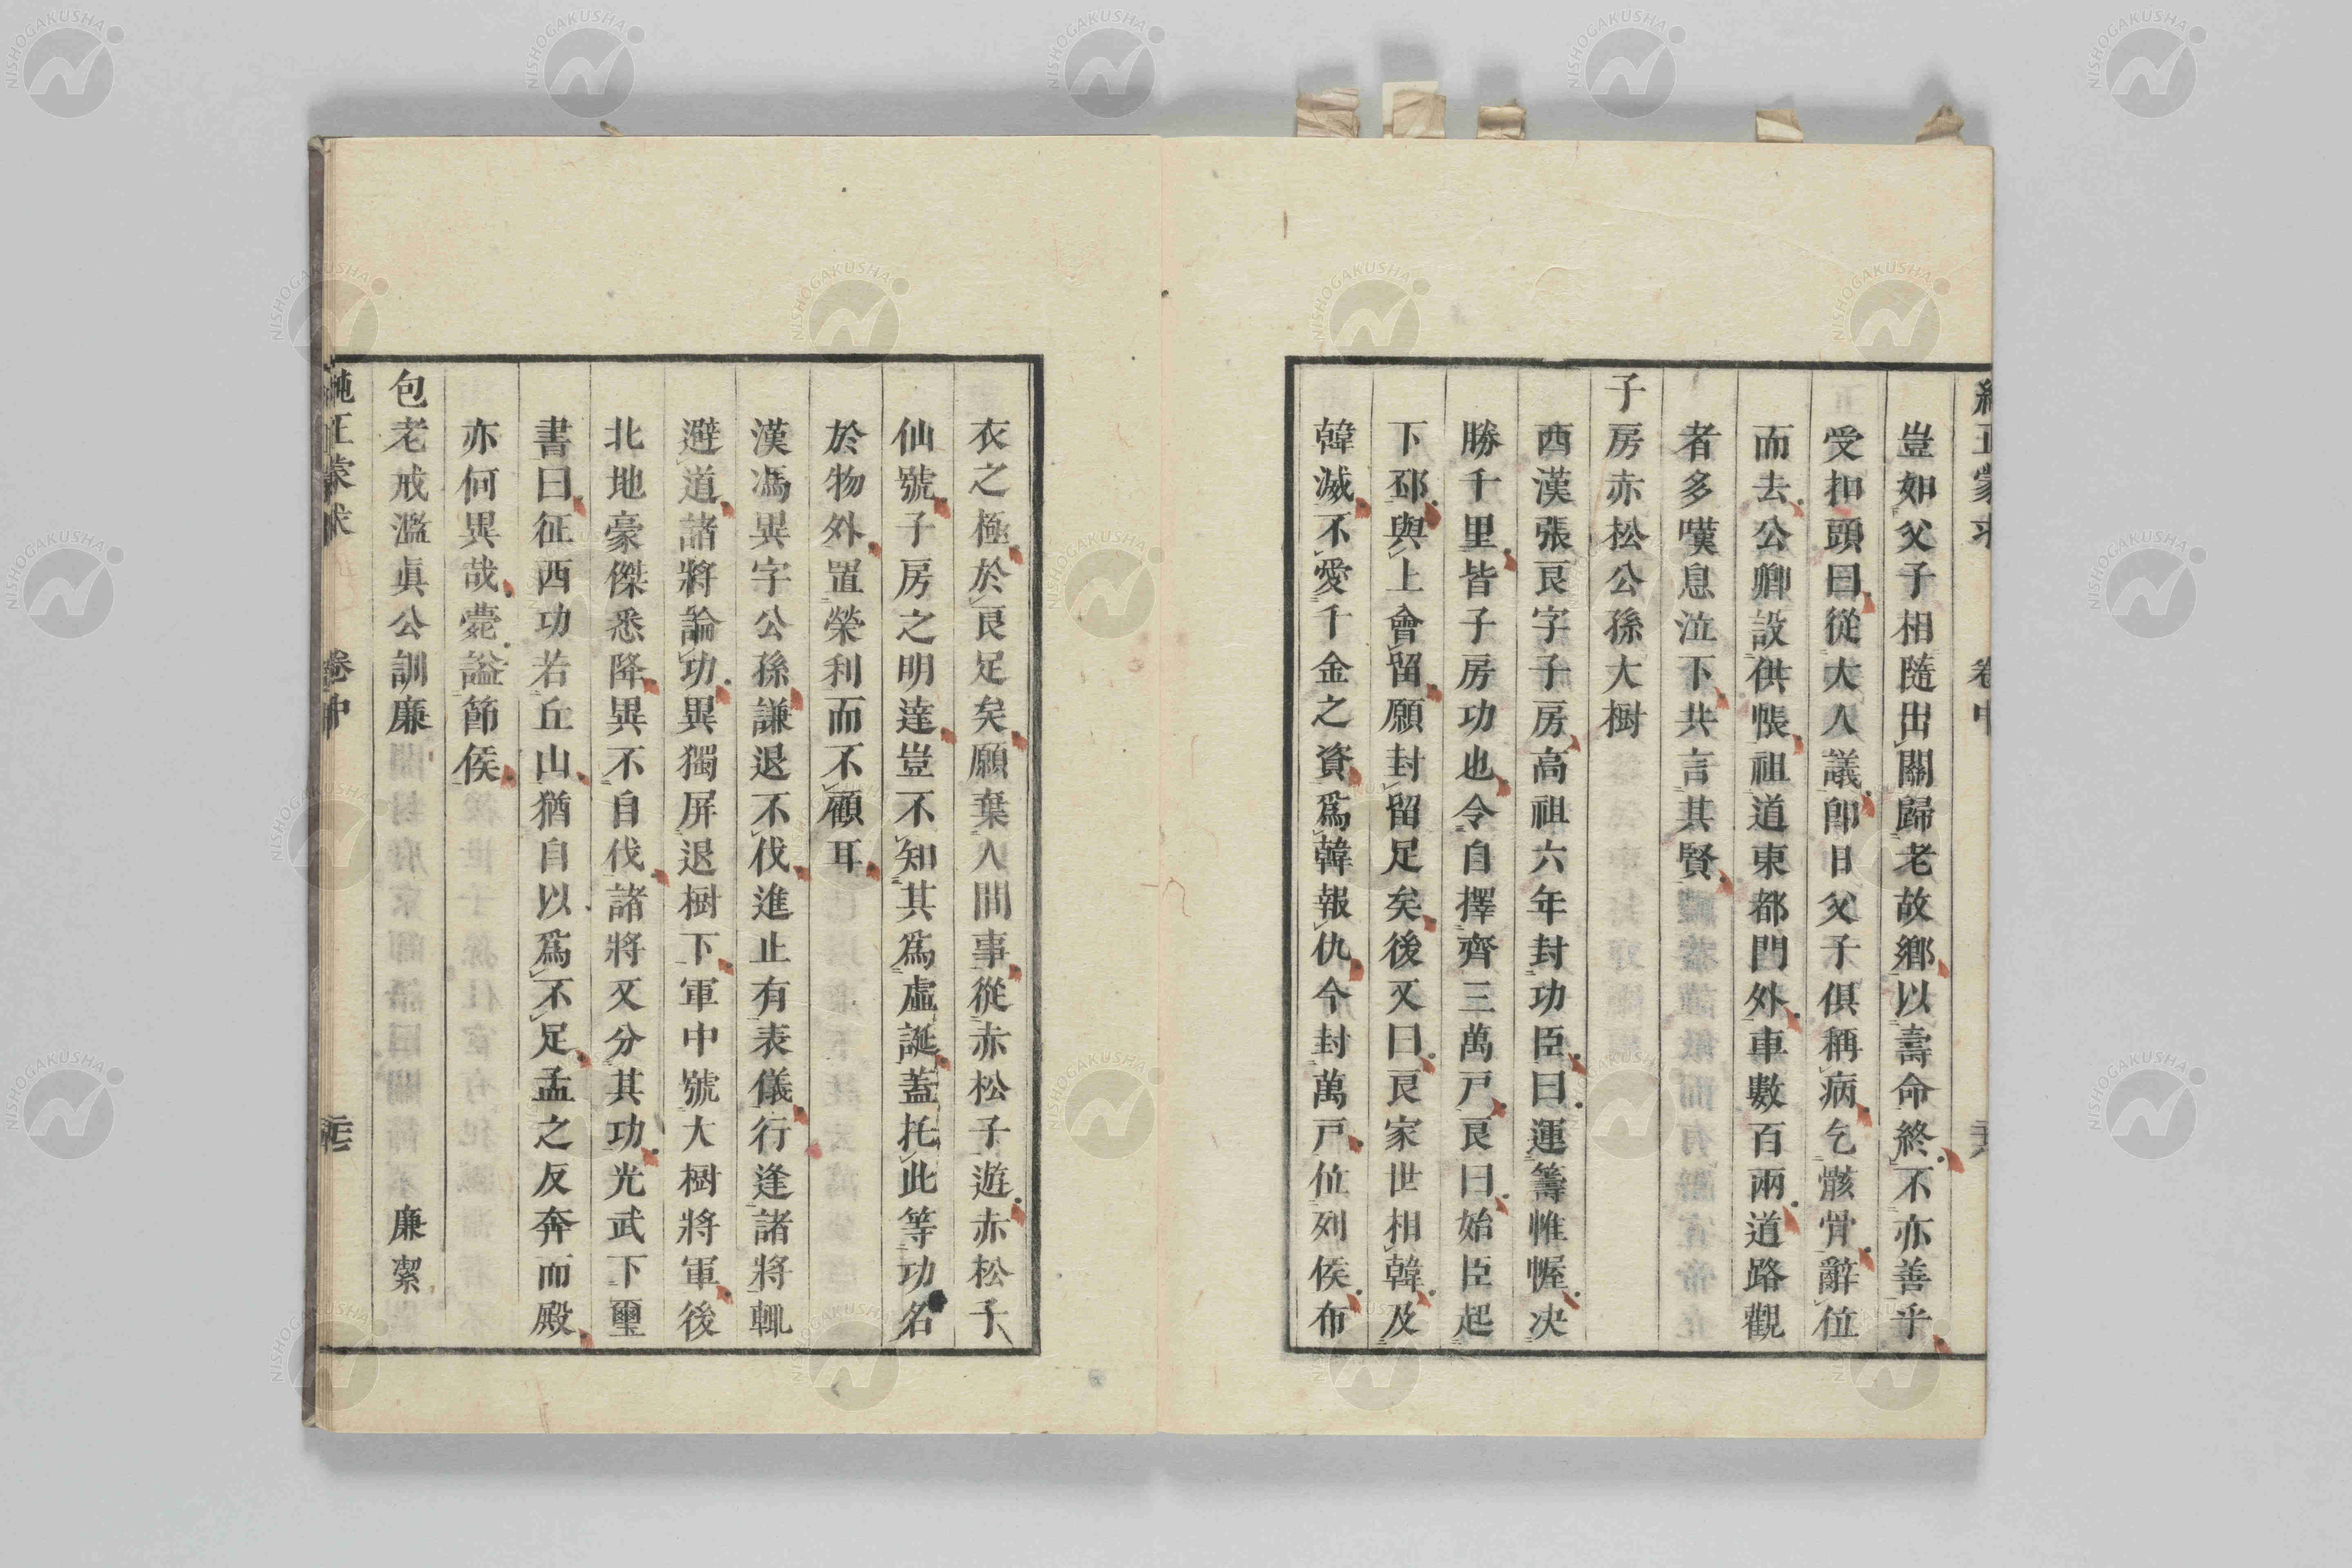 豈如父子相隨出關歸老故鄉以壽命終不亦善乎
受扣頭曰從大人議卽日父子俱稱病乞骸骨辭位
而去公卿設供帳祖道東都門外車數百兩道路觀
者多嘆息泣下共言其賢
子房赤松公孫大樹
西漢張良字子房高祖六年封功臣曰運籌帷幄决
勝千里皆子房功也令自擇齊三萬戸良曰始臣起
下邳與上會留願封留足矣後又曰良家世相韓及
韓滅不愛千金之資爲韓報仇今封萬戸位列侯布
衣之極於良足矣願棄人間事從赤松子遊赤松子
仙號子房之明達豈不知其爲虛誕蓋托此等功名
於物外置榮利而不顧耳
漢馮異字公孫謙退不伐進止有表儀行逢諸將輒
避道諸將論功異獨屏退樹下軍中號大樹將軍後
北地豪傑悉降異不自伐諸將又分其功光武下璽
書曰征西功若丘山猶自以爲不足孟之反奔而殿
亦何異哉薨謚節侯
包老戒濫眞公訓廉 廉潔
純正蒙求 卷中
NISHOGAKUSHA